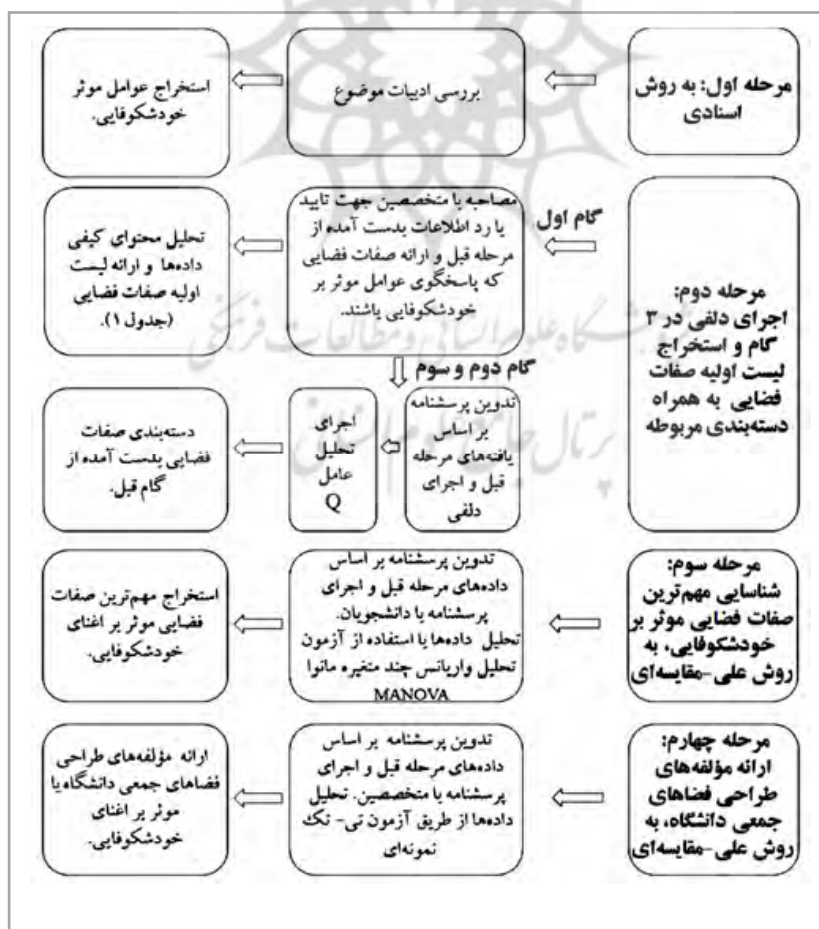 مرحله اول: به روش
اسنادی
بررسی ادبیات موضوع
استخراج عوامل موثر
خودشکوفایی.
مرحله دوم:
اجرای دلفی در ۳
گام و استخراج
لیست اولیه صفات
فضایی به همراه
دسته‌بندی مربوطه
گام اول
مصاحبه با متخصصین جهت تایید
یا رد اطلاعات بدست آمده از
مرحله قبل و ارائه صفات فضایی
که پاسخگوی عوامل موثر بر
خودشکوفایی باشند.
تحلیل محتوای کیفی
داده‌ها و ارائه لیست
اولیه صفات فضایی
(جدول ۱).
گام دوم و سوم
تدوین پرسشنامه
بر اساس
یافته‌های مرحله
قبل و اجرای
دلفی
اجرای
تحلیل
عامل
Q
دسته‌بندی صفات
فضایی بدست آمده از
گام قبل.
مرحله سوم:
شناسایی مهم‌ترین
صفات فضایی موثر بر
خودشکوفایی، به
روش علی-مقایسه‌ای
تدوین پرسشنامه بر اساس
داده‌های مرحله قبل و اجرای
پرسشنامه با دانشجویان.
تحلیل داده‌ها با استفاده از آزمون
تحلیل واریانس چند متغیره مانوا
MANOVA
استخراج مهم‌ترین صفات
فضایی موثر بر اغنای
خودشکوفایی.
مرحله چهارم:
ارائه مؤلفه‌های
طراحی فضاهای
جمعی دانشگاه، به
روش علی-مقایسه‌ای
تدوین پرسشنامه بر اساس
داده‌های مرحله قبل و اجرای
پرسشنامه با متخصصین. تحلیل
داده‌ها از طریق آزمون تی- تک
نمونه‌ای
ارائه مؤلفه‌های طراحی
فضاهای جمعی دانشگاه با
موثر بر اغنای
خودشکوفایی.
شگاه علوم انسانی و مطالعات فرهنگی
پرتال جامع علوم انسانی